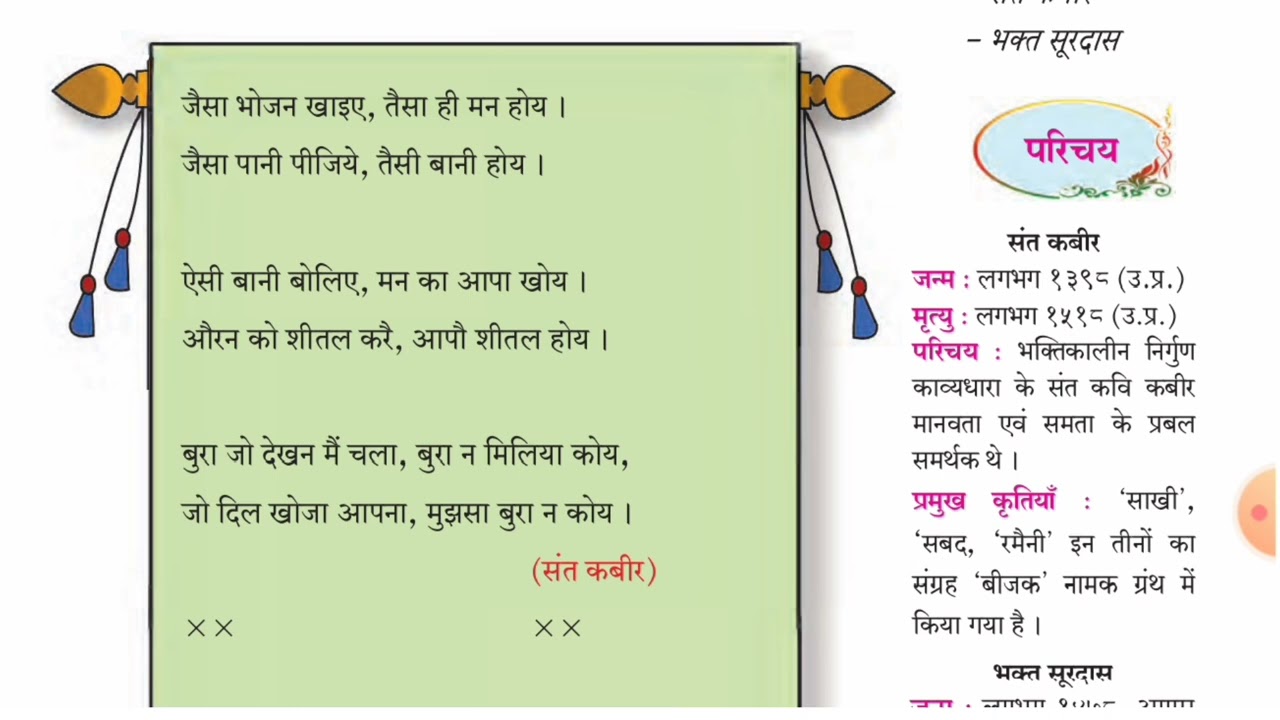 - भक्त सूरदास
जैसा भोजन खाइए, तैसा ही मन होय ।
जैसा पानी पीजिये, तैसी बानी होय ।
ऐसी बानी बोलिए, मन का आपा खोय ।
औरन को शीतल करै, आपौ शीतल होय ।
बुरा जो देखन मैं चला, बुरा न मिलिया कोय,
जो दिल खोजा आपना, मुझसा बुरा न कोय ।
(संत कबीर)
×× ××
परिचय
संत कबीर
जन्म : लगभग १३९८ (उ.प्र.)
मृत्यु : लगभग १५१८ (उ.प्र.)
परिचय : भक्तिकालीन निर्गुण
काव्यधारा के संत कवि कबीर
मानवता एवं समता के प्रबल
समर्थक थे ।
प्रमुख कृतियाँ : ‘साखी’,
‘सबद, ‘रमैनी’ इन तीनों का
संग्रह ‘बीजक’ नामक ग्रंथ में
किया गया है ।
भक्त सूरदास